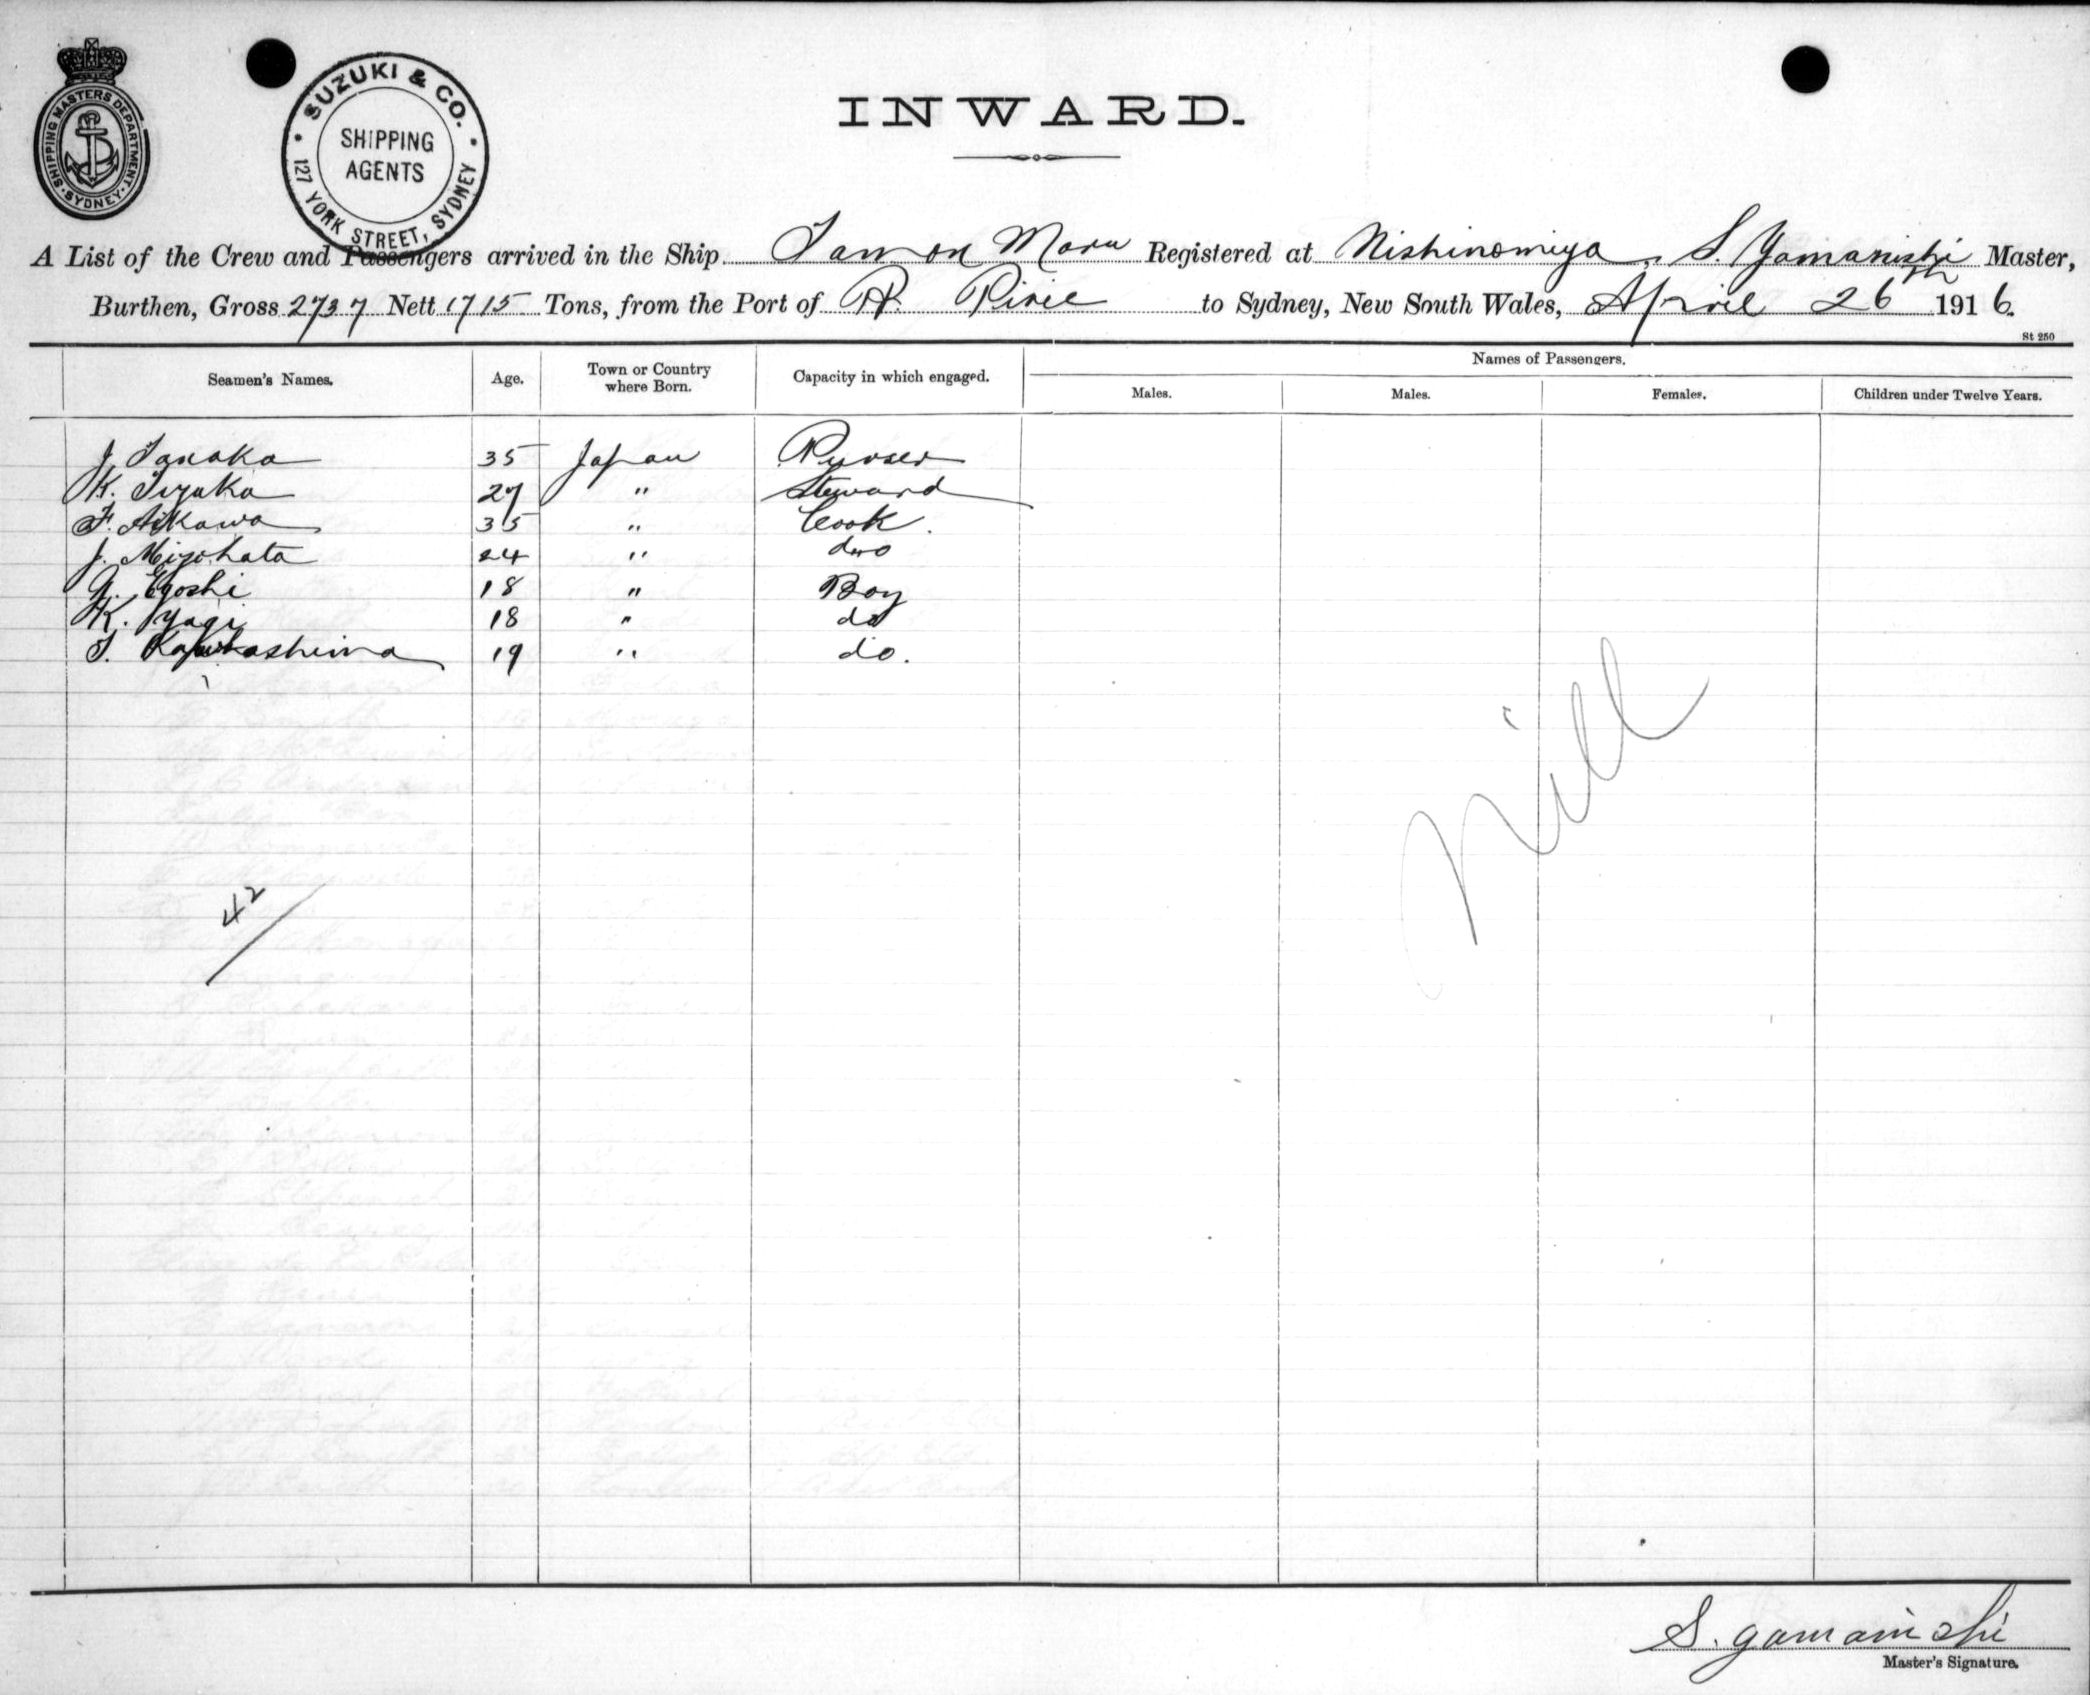 SHIPPING MASTERS DEPARTMENT · SYDNEY ·
SUZUKI & CO.
SHIPPING
AGENTS
127 YORK STREET, SYDNEY
INWARD.
A List of the Crew and Passengers arrived in the Ship Tamon Maru Registered at Nishinomiya, S. Yamanishi Master,
Burthen, Gross 2737 Nett 1715 Tons, from the Port of Pt. Pirie to Sydney, New South Wales, April 26th 1916.
St 250
Seamen's Names. Age. Town or Country where Born. Capacity in which engaged. Names of Passengers.
Males. Males. Females. Children under Twelve Years.
J. Tanaka 35 Japan Purser
K. Iizuka 27 " Steward
F. Aikawa 35 " Cook.
J. Mizohata 24 " do
G. Egoshi 18 " Boy
K. Yagi 18 " do
T. 19 " do.
Nill
42
S. Yamanishi
Master's Signature.